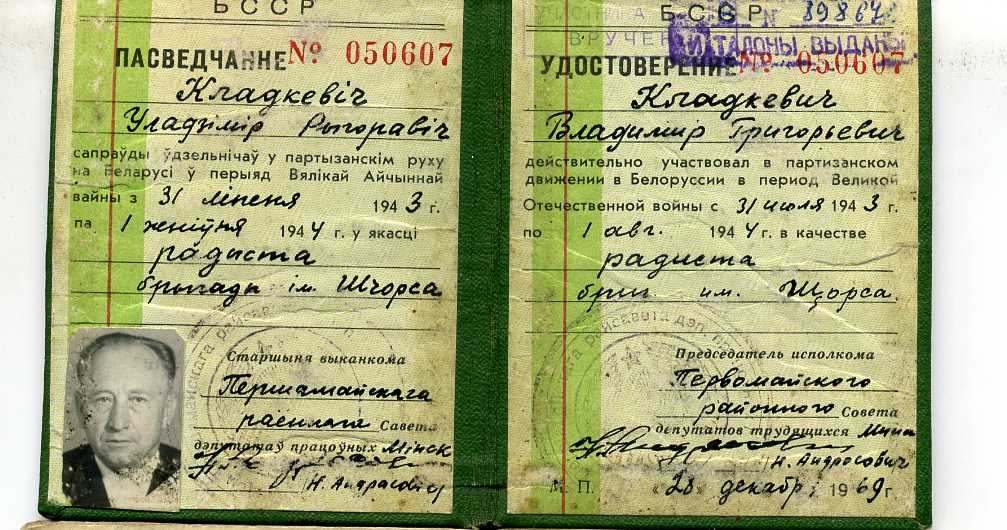 БССР
ПАСВЕДЧАННЕ № 050607
Кладкевіч
Уладзімір Рыгоравіч
сапраўды ўдзельнічаў у партызанскім руху
на Беларусі ў перыяд Вялікай Айчыннай
вайны з 31 ліпеня 1943 г.
па 1 жніўня 1944 г. у якасці
радыста
брыгады ім. Шчорса
Старшыня выканкома
Першамайскага
раённага Савета
дэпутатаў працоўных Мінск
Н. Андрасовіч
БССР
№ 89867
ВРУЧЕ
ТАЛОНЫ ВЫДАНЫ
УДОСТОВЕРЕНИЕ № 050607
Кладкевич
Владимир Григорьевич
действительно участвовал в партизанском
движении в Белоруссии в период Великой
Отечественной войны с 31 июля 1943 г.
по 1 авг. 1944 г. в качестве
радиста
бриг им. Щорса.
Председатель исполкома
Первомайского
районного Совета
депутатов трудящихся
Н. Андросович
М. П. «28» декабр 1969 г.